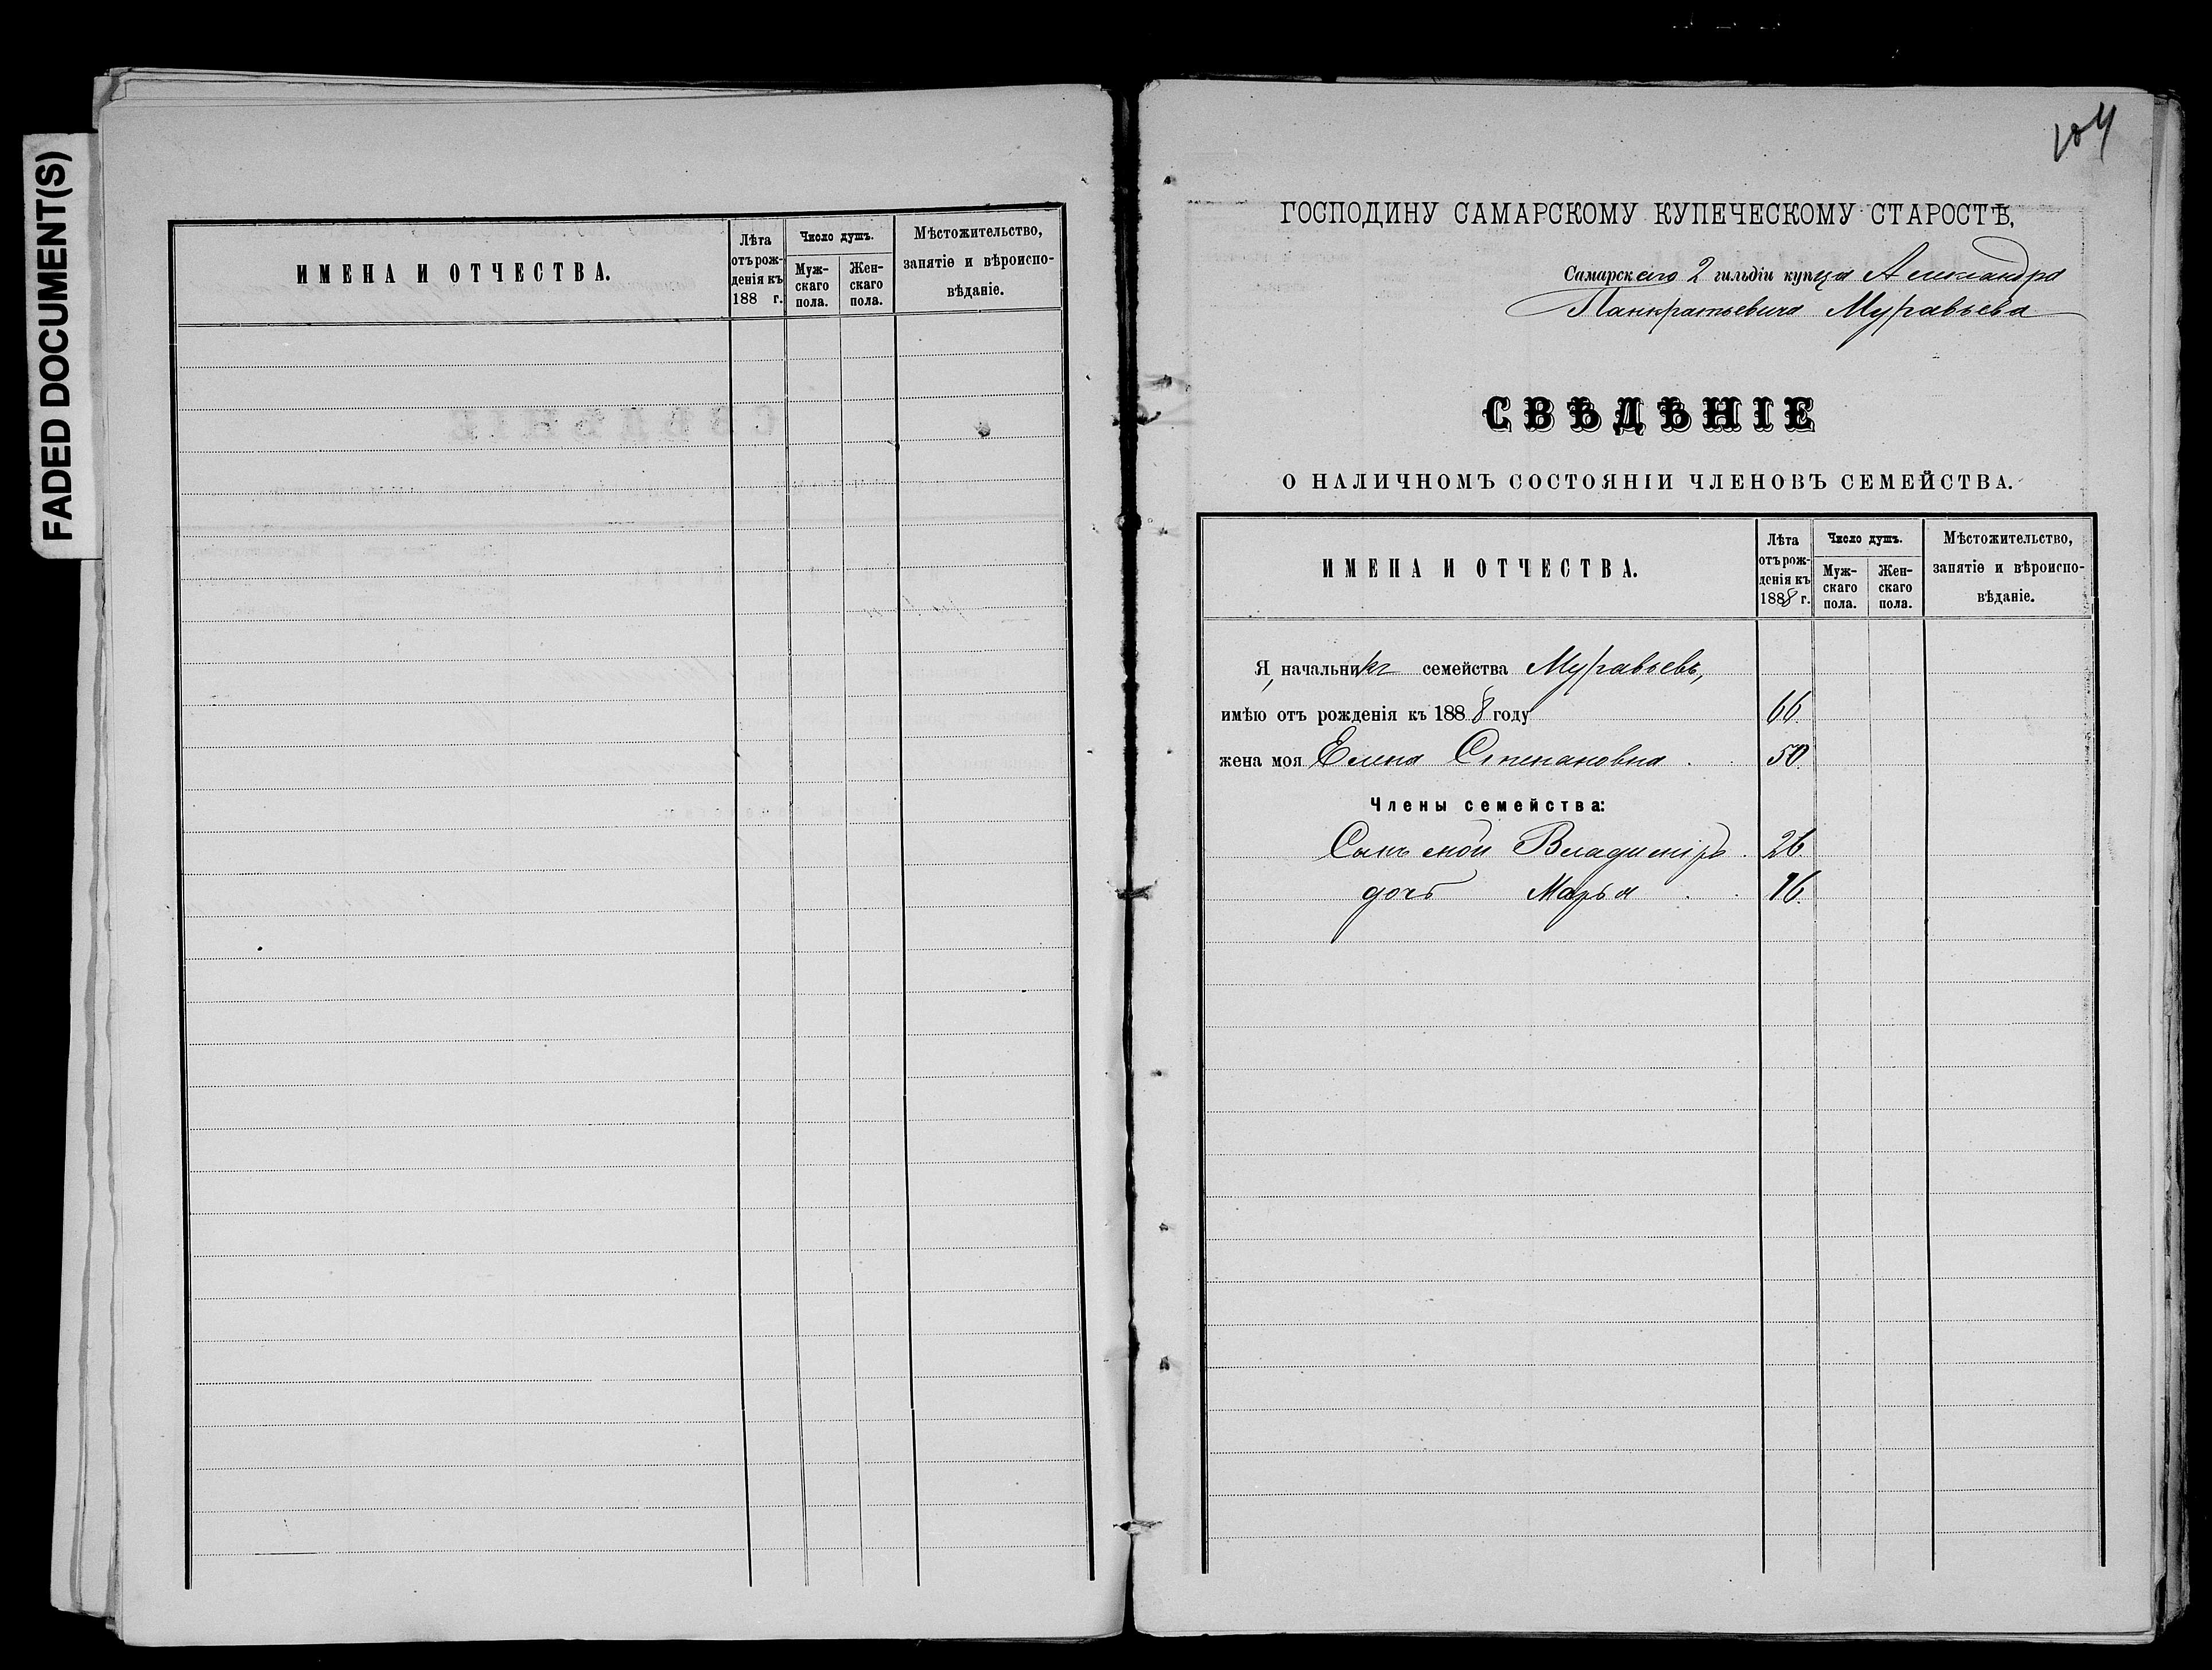 FADED DOCUMENT(S)
ИМЕНА И ОТЧЕСТВА.
Лѣта отъ рожденія къ 188 г.
Число душъ.
Мужскаго пола.
Женскаго пола.
Мѣстожительство, занятіе и вѣроисповѣданіе.
104
ГОСПОДИНУ САМАРСКОМУ КУПЕЧЕСКОМУ СТАРОСТѢ,
Самарскаго 2 гильдіи купца Александра
Панкратьевича Муравьева
СВѢДѢНІЕ
О НАЛИЧНОМЪ СОСТОЯНІИ ЧЛЕНОВЪ СЕМЕЙСТВА.
ИМЕНА И ОТЧЕСТВА.
Лѣта отъ рожденія къ 1888 г.
Число душъ.
Мужскаго пола.
Женскаго пола.
Мѣстожительство, занятіе и вѣроисповѣданіе.
Я, начальникъ семейства Муравьевъ,
имѣю отъ рожденія къ 1888 году 66.
жена моя Елена Степановна 50.
Члены семейства:
Сынъ мой Владиміръ 26.
дочь Марья 16.